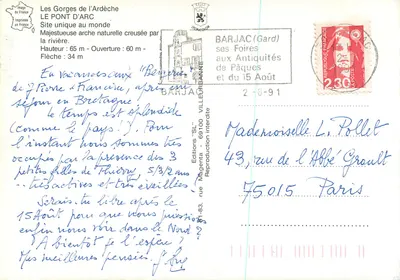 Les Gorges de l'Ardèche
LE PONT D'ARC
Site unique au monde
Majestueuse arche naturelle creusée par
la rivière.
Hauteur : 65 m - Ouverture : 60 m -
Flèche : 34 m
En vacances aux
de Pierre et Francine, après une
séjour en Bretagne,
le temps est splendide
(comme le pays !). Pour
l'instant nous sommes très
occupés par la présence des 3
petites filles de Thierry, 5/3/2 ans
très actives et très éveillées !
Serais-tu libre après le
15 Août pour que nous puissions
enfin nous voir dans le Nord ?
A bientôt je l'espère,
Mes meilleures pensées.
Editions "SL"
69100 VILLEURBANNE
Reproduction interdite
BARJAC
BARJAC (Gard)
ses Foires
aux Antiquités
de Pâques
et du 15 Août
2-8-91
2,30
Mademoiselle L. Pollet
43 rue de l'Abbé Groult
75015 Paris